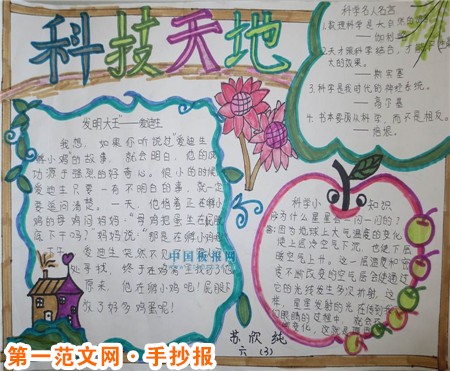 科技天地
科学名人名言
——伽利
2.天才跟科学结合,才
大的效果。
——斯宾塞
3.科学是我时代的神经系统。
——高尔基
4.书本要从科学,而不是相反。
——培根
发明大王——爱迪生
我想,如果你听说过"爱迪生
孵小鸡"的故事,就会明白,他的成
功源于强烈的好奇心。很小的时候
爱迪生只要一有不明白的事,就一定
要追问清楚。一天,他指着正在孵小
鸡的母鸡问妈妈:"母鸡把蛋坐在屁股
底下干吗?"妈妈说:"那是在孵小鸡
爱迪生突然不见
处寻找,终于在鸡窝
原来,他在孵小鸡呢!屁股下
放了好多鸡蛋呢!
中国板报网
科学小知识
为什么星星会一闪一闪的?
答:因为地球上大气温度的变化
使上点冷空气下沉,也使下层
暖空气上升。这一层温度和密
度不断改变的空气层会使通过
它的光持发生多次折射。这样
星星发射的光在传到
们眼睛的过程中,就会
变化,这就是
苏欣纯
六(3)
第一范文网·手抄报